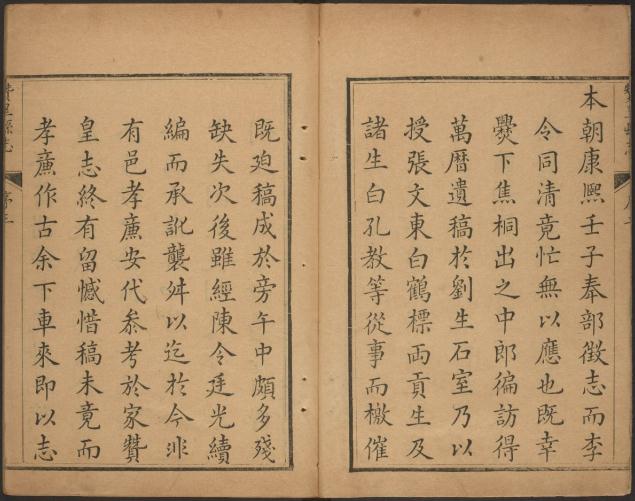 本朝康熙壬子奉部徵志而李
令同清竟忙無以應也既幸
爨下焦桐出之中郎徧訪得
萬曆遺稿於劉生石室乃以
授張文東白鶴標両貢生及
諸生白孔教等從事而檄催
既迫稿成於旁午中頗多殘
缺失次後雖經陳令廷光續
編而承訛襲舛以迄於今非
有邑孝廉安代叅考於家贊
皇志終有留憾惜稿未竟而
孝廉作古余下車來即以志
贊皇縣志
序三